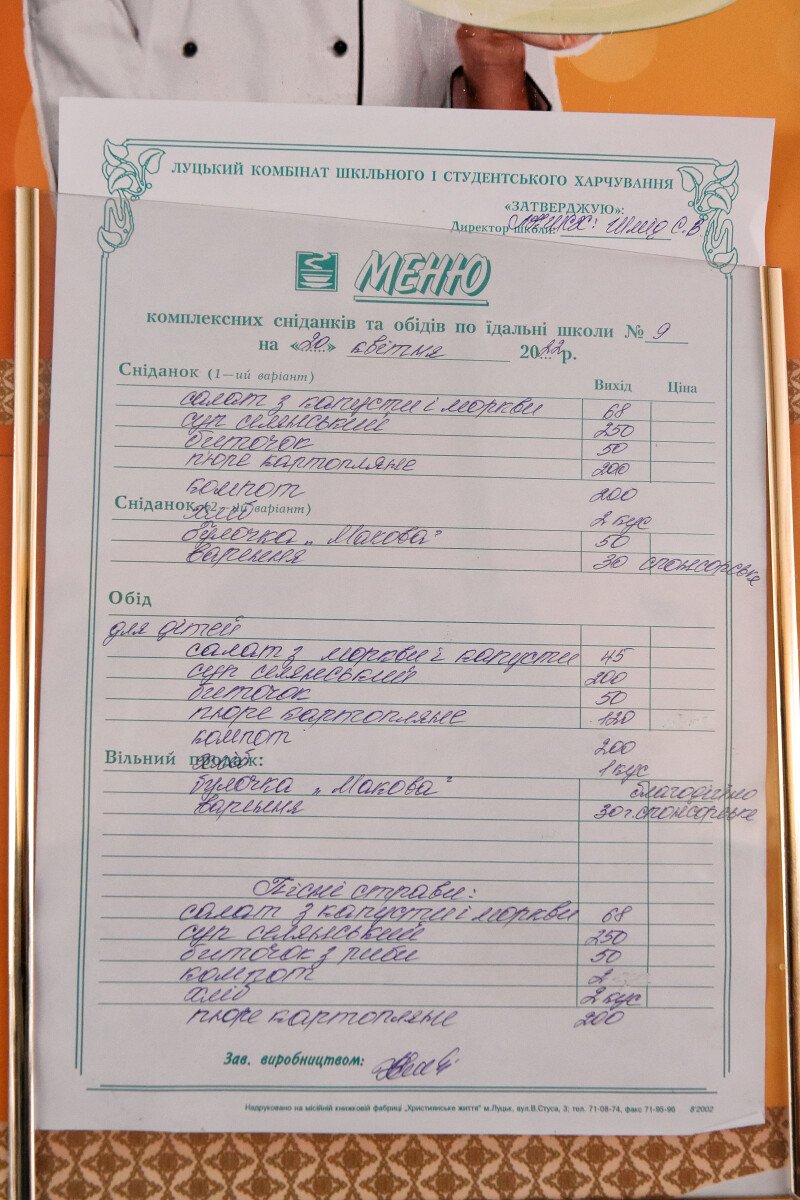 ЛУЦЬКИЙ КОМБІНАТ ШКІЛЬНОГО І СТУДЕНТСЬКОГО ХАРЧУВАННЯ
«ЗАТВЕРДЖУЮ»:
Директор школи: Шмід С.В
МЕНЮ
комплексних сніданків та обідів по їдальні школи № 9
на «20» квітня 2022р.
Сніданок (1—ий варіант) Вихід Ціна
салат з капусти і моркви 68
суп селянський 250
биточок 50
пюре картопляне 200
компот 200
Сніданок (2—ий варіант)
хліб 2 кус
булочка „Макова" 50
варення 30 спонсорське
Обід
для дітей
салат з моркви і капусти 45
суп селянський 200
биточок 50
пюре картопляне 120
компот 200
Вільний продаж:
хліб 1 кус
булочка „Макова" благодійно
варення 30 г. спонсорське
Пісні страви:
салат з капусти і моркви 68
суп селянський 250
биточок з риби 50
компот 2
хліб 2 кус
пюре картопляне 200
Зав. виробництвом:
Надруковано на місійній книжковій фабриці „Християнське життя" м.Луцьк, вул.В.Стуса, 3; тел. 71-08-74, факс 71-95-96 8'2002